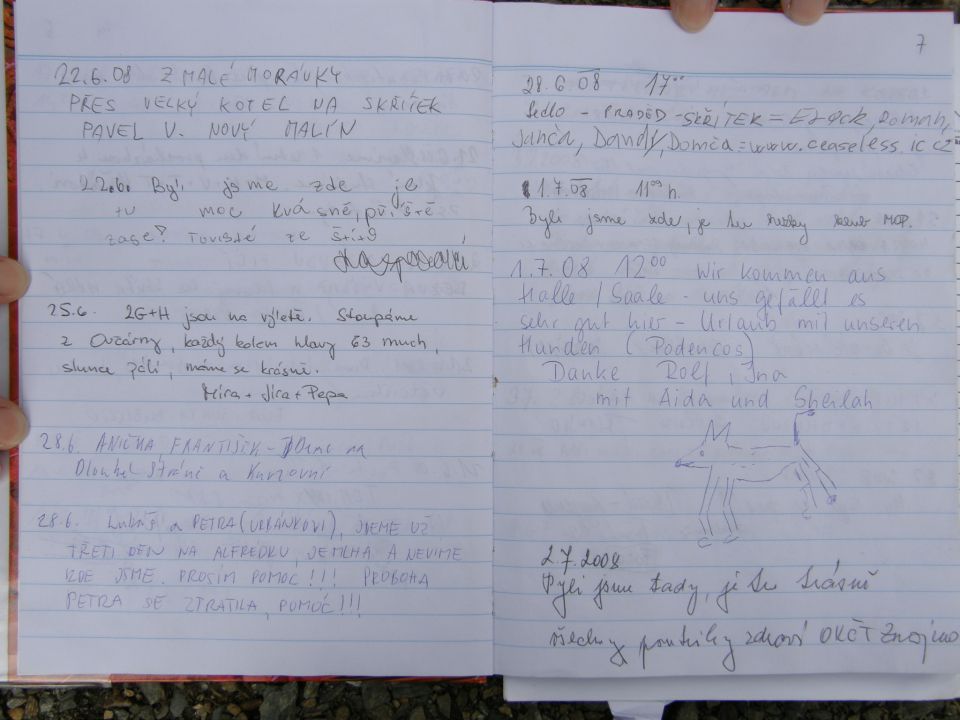 22.6.08 Z MALÉ MORÁVKY
PŘES VELKÝ KOTEL NA SKŘÍTEK
PAVEL V. NOVÝ MALÍN
22.6. Byli jsme zde je
tu moc krásně, příště
zase? Turisté ze
25.6. 2G+H jsou na výletě. Stoupáme
z Ovčárny, každý kolem hlavy 63 much,
slunce pálí, máme se krásně.
Míra + Jira + Pepa
28.6. ANIČKA, FRANTIŠEK - na
Dlouhé Stráně a
28.6. Lukáš a PETRA (URBÁNKOVI), JDEME UŽ
TŘETÍ DEN NA ALFRÉDKU, JE MLHA A NEVÍME
KDE JSME. PROSÍM POMOC!!! PROBOHA
PETRA SE ZTRATILA, POMOC!!!
7
28.6 08 17⁰⁰
Sedlo - PRADĚD - SKŘÍTEK =
Janča, Dandy, Domča = www.ceaseless.ic.cz
1.7.08 h.
Byli jsme zde, je tu
1.7.08 12⁰⁰ Wir kommen aus
Halle / Saale - uns gefällt es
sehr gut hier - Urlaub mit unseren
Hunden (Podencos)
Danke Rolf, Ina
mit Aida und Sheilah
2.7.2008
Byli jsme tady, je tu krásně
všechny poutníky zdraví OKČT Znojmo